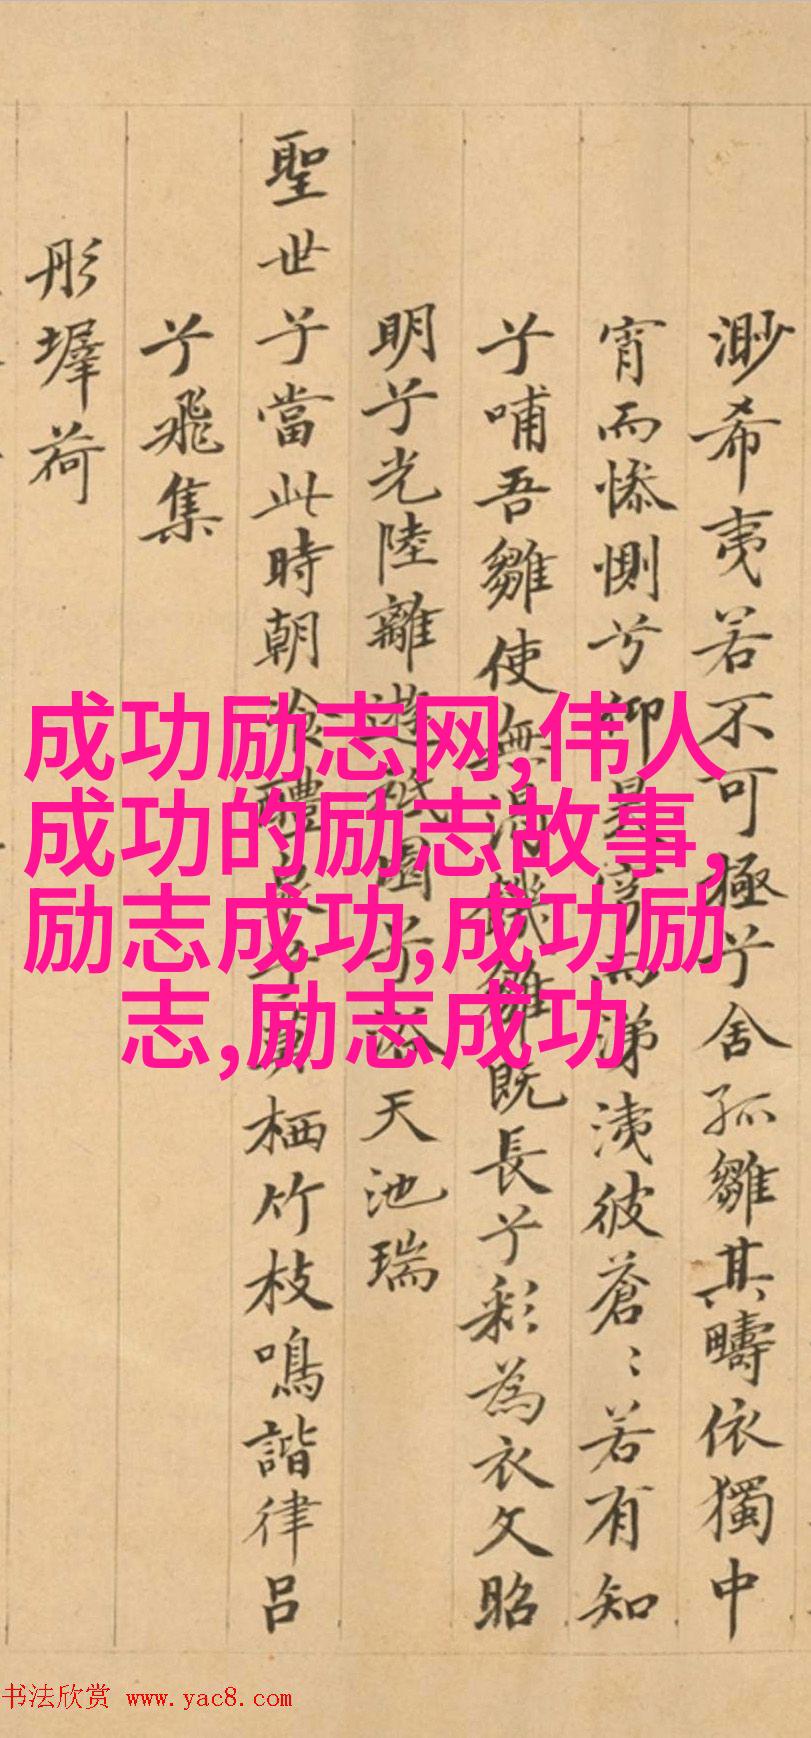 渺希夷若不可極兮舍孤雛其疇依獨中
宵而慘惻兮仰昊穹而涕洟彼蒼〻若有知
兮哺吾雛使無渴饑雛既長兮彩為衣文昭
明兮光陸離遊祇園兮浴天池瑞
聖世兮當此時朝飲醴泉兮暮栖竹枝鳴諧律呂
兮飛集
彤墀荷
成功励志网,伟人
成功的励志故事,
励志成功,成功励
志,励志成功
书法欣赏 www.yac8.com